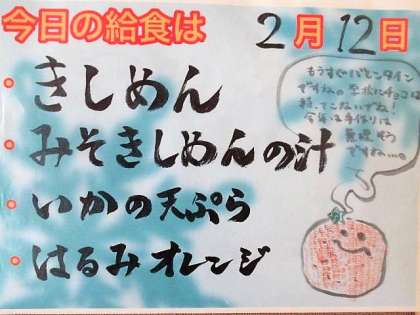 今日の給食は 2月12日
・きしめん
・みそきしめんの汁
・いかの天ぷら
・はるみオレンジ
もうすぐバレンタイン
ですね。学校にチョコは
持ってこないでね!
今年は手作りは
無理そう
ですね…。